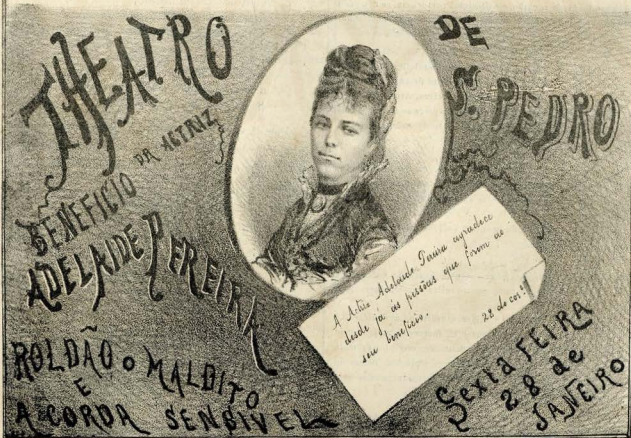 THEATRO
DE
S. PEDRO
BENEFICIO DA ACTRIZ
ADELAIDE PEREIRA
A Actriz Adelaide Pereira agradece
desde já as pessoas que forem ao
seu beneficio.
28 do cor.
ROLDÃO O MALDITO
E
A CORDA SENSIVEL
Sexta FEIRA
28 de
JANEIRO